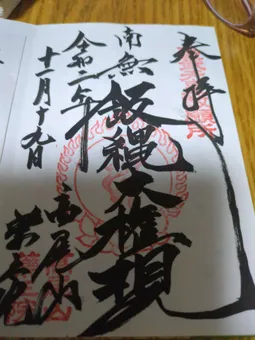 奉拝
南無飯縄大権現
令和二年
十一月十九日
高尾山